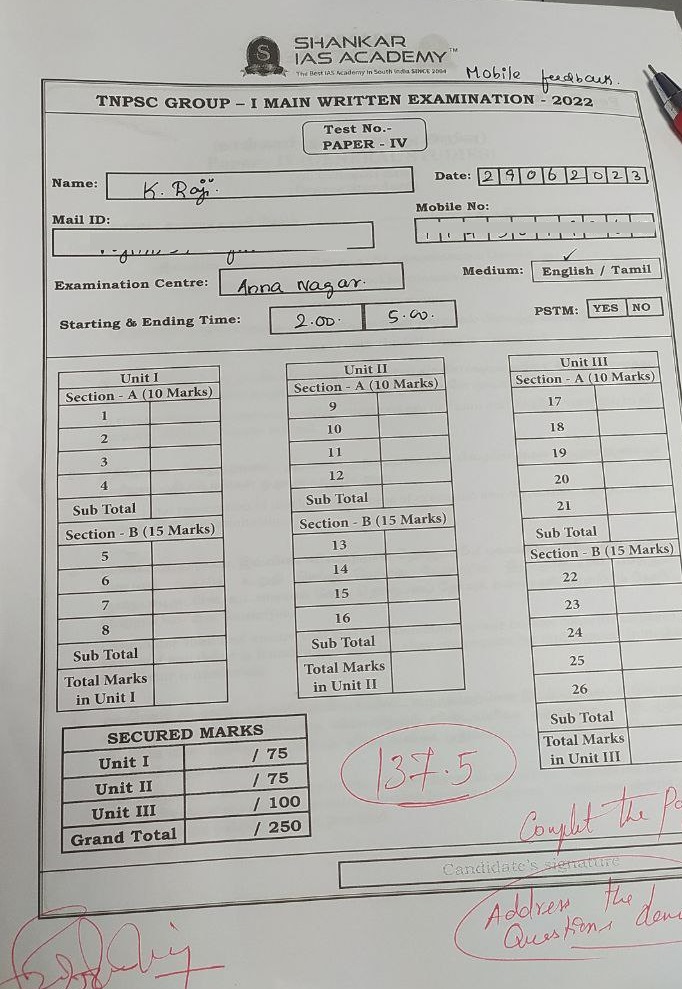 SHANKAR
IAS ACADEMY™
The Best IAS Academy in South India SINCE 2004
Mobile feedback.
TNPSC GROUP – I MAIN WRITTEN EXAMINATION - 2022
Test No.-
PAPER - IV
Name: K. Raji
Date: 29062023
Mail ID:
Mobile No:
Examination Centre: Anna Nagar.
Medium: English / Tamil
Starting & Ending Time: 2.00. 5.00.
PSTM: YES NO
Unit I
Section - A (10 Marks)
1
2
3
4
Sub Total
Section - B (15 Marks)
5
6
7
8
Sub Total
Total Marks
in Unit I
Unit II
Section - A (10 Marks)
9
10
11
12
Sub Total
Section - B (15 Marks)
13
14
15
16
Sub Total
Total Marks
in Unit II
Unit III
Section - A (10 Marks)
17
18
19
20
21
Sub Total
Section - B (15 Marks)
22
23
24
25
26
Sub Total
Total Marks
in Unit III
SECURED MARKS
Unit I / 75
Unit II / 75
Unit III / 100
Grand Total / 250
137.5
Complet the
Candidate's signature
Address the
Questions